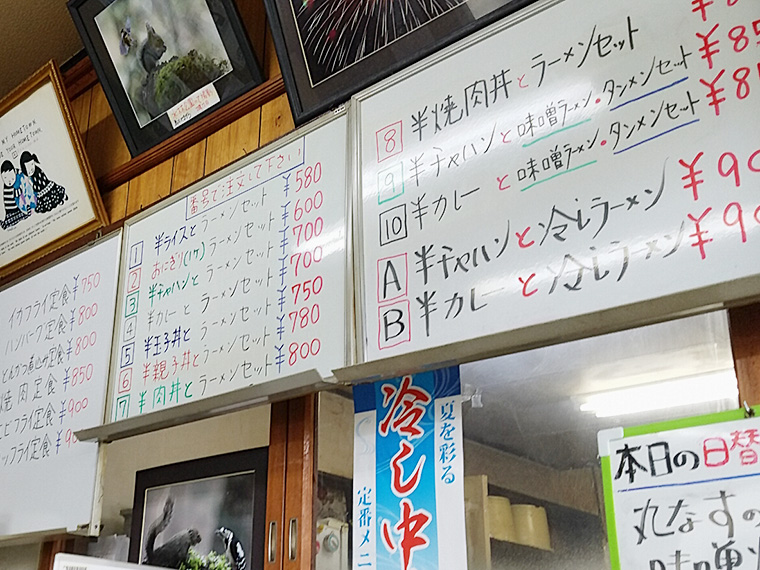 MY HOMETOWN
YOUR HOME TOWN
イカフライ定食 ¥750
ハンバーグ定食 ¥800
とんかつ煮込み定食 ¥800
焼肉定食 ¥850
フライ定食 ¥900
フライ定食 ¥9
番号で注文して下さい
1 半ライスとラーメンセット ¥580
2 おにぎり(1ケ)とラーメンセット ¥600
3 半チャハンとラーメンセット ¥700
4 半カレーとラーメンセット ¥700
5 半玉子丼とラーメンセット ¥750
6 半親子丼とラーメンセット ¥780
7 半肉丼とラーメンセット ¥800
8 半焼肉丼とラーメンセット ¥8
9 半チャハンと味噌ラーメン・タンメンセット ¥85
10 半カレーと味噌ラーメン・タンメンセット ¥85
A 半チャハンと冷しラーメン ¥90
B 半カレーと冷しラーメン ¥90
夏を彩る
冷し中
定番メニ
本日の日替
丸なすの
味噌